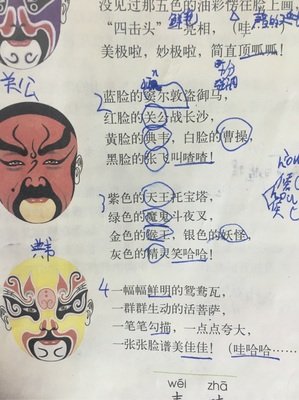 没见过那五色的油彩愣在脸上画，
鲜艳
“四击头”亮相，
美极啦，妙极啦，简直顶呱呱！
关公
2
蓝脸的窦尔敦盗御马，
红脸的关公战长沙，
黄脸的典韦，白脸的曹操，
黑脸的张飞叫喳喳！
3
紫色的天王托宝塔，
绿色的魔鬼斗夜叉，
金色的猴王，银色的妖怪，
灰色的精灵笑哈哈！
典韦
4
一幅幅鲜明的鸳鸯瓦，
一群群生动的活菩萨，
一笔笔勾描，一点点夸大，
一张张脸谱美佳佳！（哇哈哈……
wéi zhā